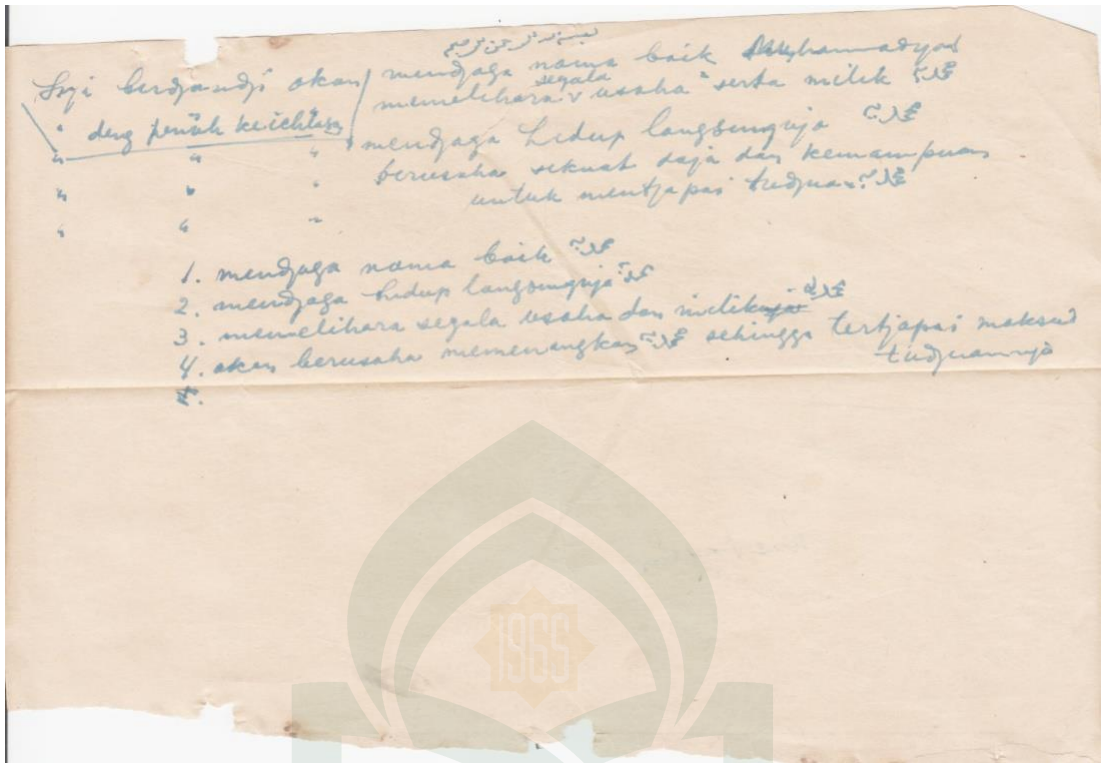 بسم الله الرحمن الرحيم
Saja berdjandji akan / mendjaga nama baik Muhammadijah
" deng penuh keichlasan memelihara segala usaha² serta milik محمدية
" " " mendjaga hidup langsungnja محمدية
" " " berusaha sekuat daja dan kemampuan
" " " untuk mentjapai tudjuan محمدية
1. mendjaga nama baik محمدية
2. mendjaga hidup langsungnja محمدية
3. memelihara segala usaha dan milik محمدية
4. akan berusaha memenangkan محمدية sehingga tertjapai maksud
tudjuannja
5.
1966